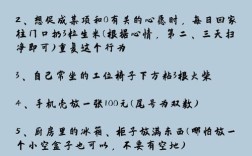 2、想促成某项和0有关的心愿时，每日回家
往门口扔3粒生米(根据心情，第二、三天扫
净即可)重复这个行为
3、自己常坐的工位椅子下方粘3根火柴
4、手机壳放一张100元(尾号为双数)
5、厨房里的冰箱、柜子放满东西(哪怕放一
个小空盒子也可以，不要有空地)